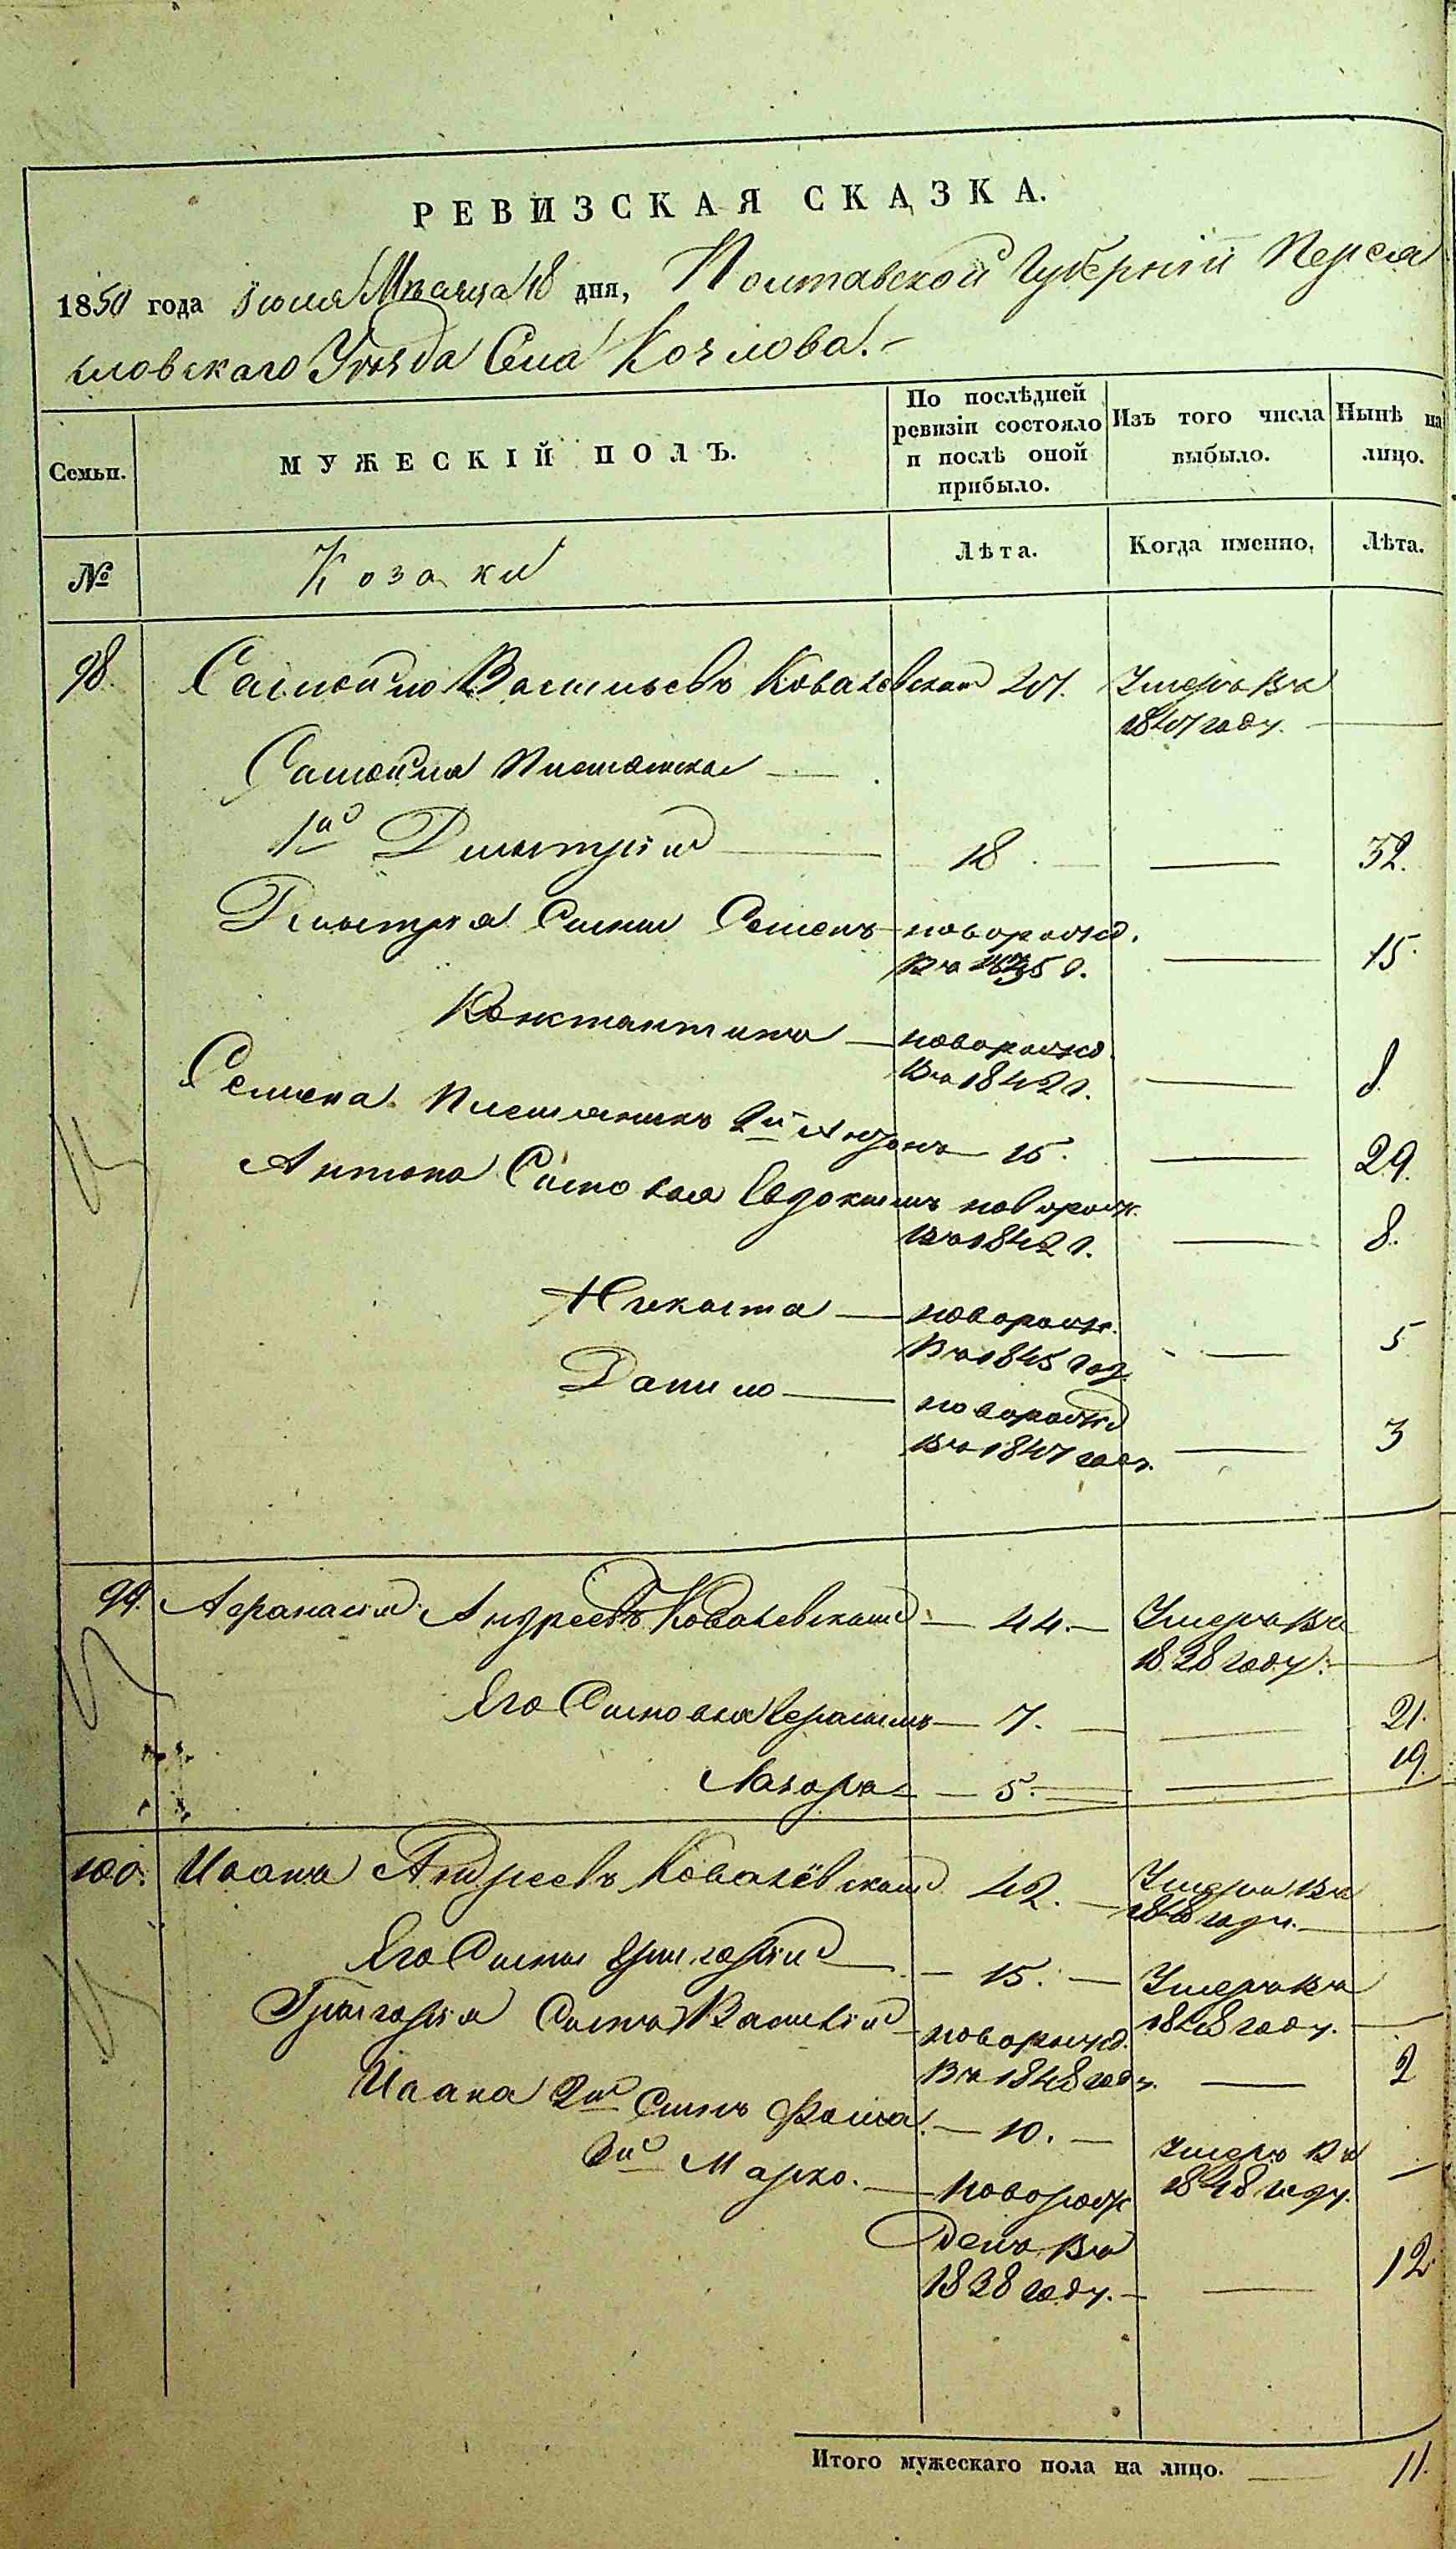 РЕВИЗСКАЯ СКАЗКА.
1850 года Июля Мѣсяца 18 дня, Полтавской Губерніи Переяс
ловскаго Уѣзда Села Козлова.
Семьи.
МУЖЕСКІЙ ПОЛЪ.
По послѣдней
ревизіи состояло
и послѣ оной
прибыло.
Изъ того числа
выбыло.
Нынѣ на
лицо.
№
Козаки
Лѣта.
Когда именно.
Лѣта.
98. Самойло Васильевъ Ковалевскій 47. Умеръ въ
1847 году.
Самойла Племянники
1й Дмитрій 18 32.
Дмитрія Сыны Семенъ новорожд. 15
въ 1835 г.
Константинъ новорожд. 8
въ 1842 г.
Племянникъ 2й Антонъ 15. 29.
Антона Сыновья Евдокимъ новорож. 8.
въ 1842 г.
Никита новорож. 5
въ 1845 год.
Данило новорожд 3
въ 1847 году.
99. Афанасій Андреевъ Ковалевскій 44. Умеръ въ
1838 году.
Его Сыновья Герасимъ 7. 21.
Лазоръ 5. 19.
100. Иванъ Андреевъ Ковалевскій 42. Умеръ въ
1848 году.
Его Сыны Григорій 15. Умеръ въ
1848 году.
Григорія Сынъ Василій новорожд. 2
въ 1848 году.
Ивана 2й Сынъ Фома. 10. Умеръ въ
1848 году.
3й Марко. Новорож
денъ въ 12
1838 году.
Итого мужескаго пола на лицо. 11.